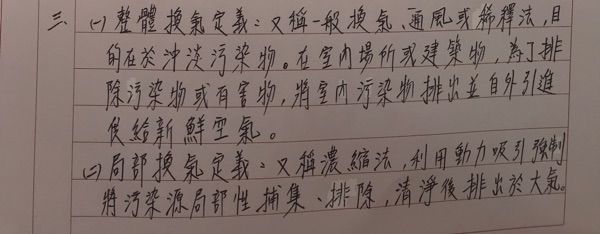 三、(一)整體換氣定義：又稱一般換氣、通風或稀釋法，目
的在於沖淡污染物。在室內場所或建築物，為了排
除污染物或有害物，將室內污染物排出並自外引進
供給新鮮空氣。
(二)局部換氣定義：又稱濃縮法，利用動力吸引強制
將污染源局部性捕集、排除，清淨後排出於大氣。